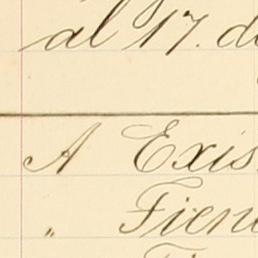 al 17. d
A Exis
" Fien